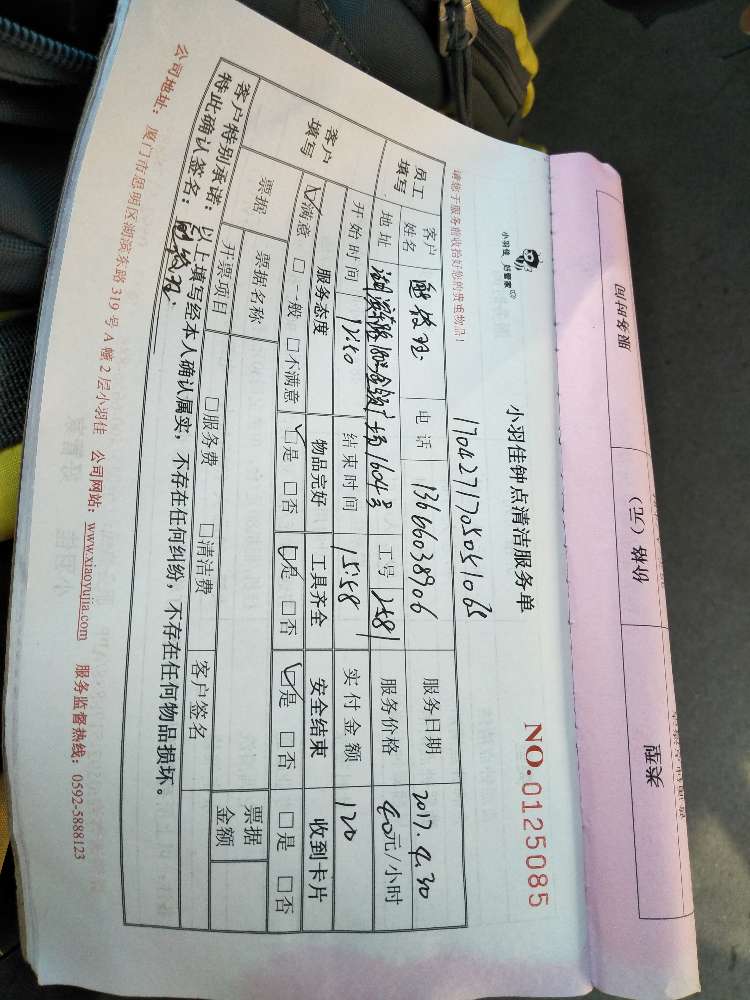 服务时间 价格（元） 类型
小羽佳 好管家
小羽佳钟点清洁服务单
NO.0125085
请您于服务前收拾好您的贵重物品！
170427170505106
员工填写 客户姓名 电话 13666038906 服务日期 2017.4.30
地址 1604号 工号 2581 服务价格 40元/小时
客户填写 开始时间 12:50 结束时间 15:58 实付金额 120
服务态度 物品完好 工具齐全 安全结束 收到卡片
☑满意 □一般 □不满意 ☑是 □否 ☑是 □否 ☑是 □否 □是 □否
票据 票据名称 票据金额
开票项目 □服务费 □清洁费 客户签名
客户特别承诺：以上填写经本人确认属实，不存在任何纠纷，不存在任何物品损坏。
特此确认签名：
公司地址：厦门市思明区湖滨东路319号A幢2层小羽佳 公司网站：www.xiaoyujia.com 服务监督热线：0592-5888123